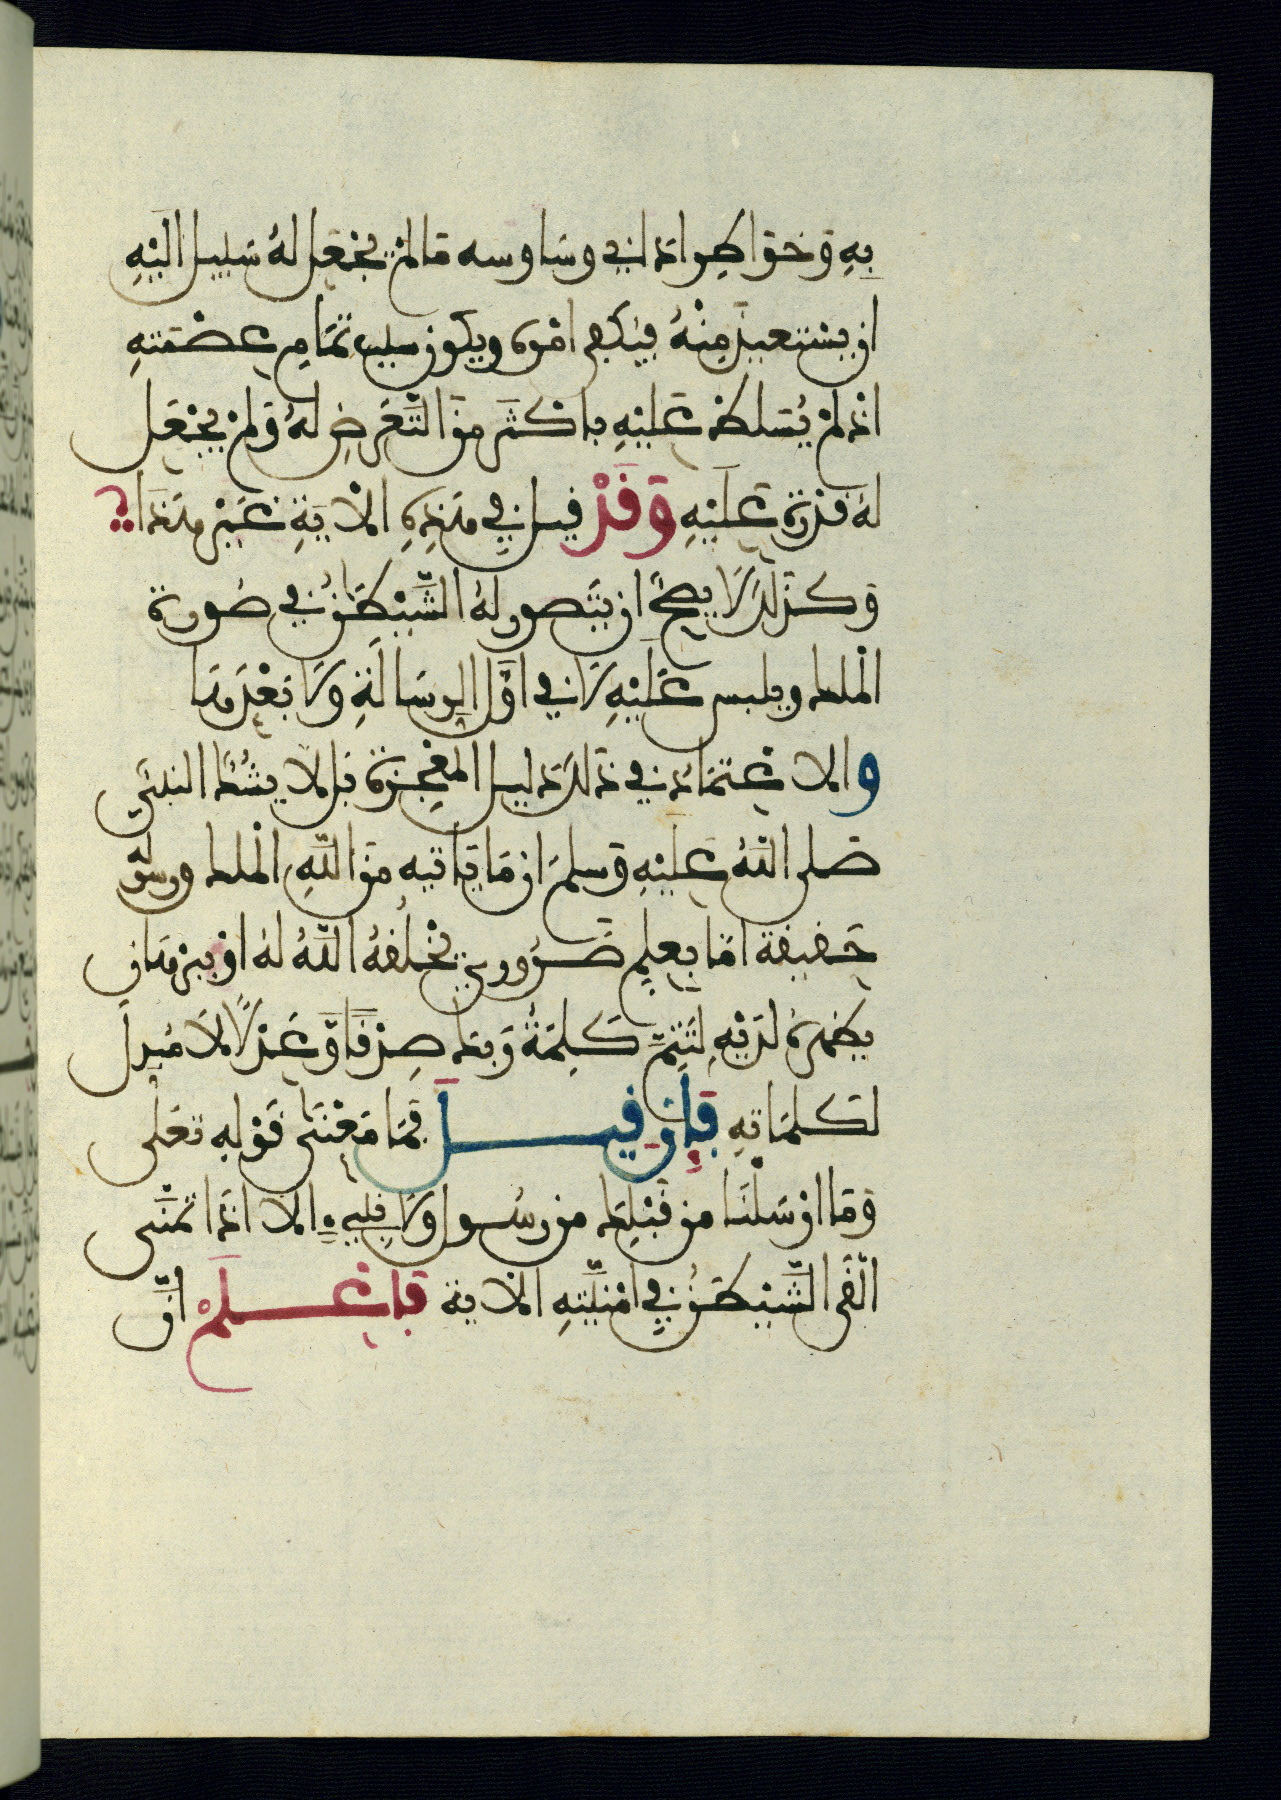 بِهِ وَخَوَاطِرِ ادَانِي وَسَاوِسه مَا لَمْ يُجْعَل لَهُ سَبِيل الَيْهِ
ان يسْتَعِيذَ مِنْهُ فَيُكْفى امْرَه ويكون سبب تمَامِ عِصْمَتِهِ
اذْ لَمْ يُسَلَّطْ عَلَيْهِ باكْثَر مِنَ التَّعَرضِ لَهُ وَلَمْ يُجْعَل
لَهُ قُدْرَة عَلَيْهِ وَقَدْ قيل في هَذِهِ الْاَيَةِ غَيْر هَذَا
وَكَذَلِكَ لَا يصحُّ ان يتَصور لَهُ الشَّيْطَنُ في صُورَة
الْمَلك ويلبس عَلَيْهِ لَا في اوَّل الرِسَالَةِ وَلَا بَعْدَهَا
والاعْتمَاد في ذَلِكَ دَلِيل الْمُعْجِزَة بَل لا يشُكُّ النبيّ
صَلى اللَّهُ عَلَيْهِ وَسلمَ ان مَا يَاتيه مِنَ اللَّهِ الْمَلك ورسولُهُ
حَقِيقَة امَّا بِعِلمٍ ضَرُوري يَخْلُقُهُ اللَّهُ لَهُ اوْ ببرهَان
يظهره لَدَيْهِ لِتَتِمَّ كَلِمَةُ رَبك صِدْقًا وَّعَدْلًا لَا مُبدلَ
لكلمَاتِهِ فَإِن قِيـــلَ فَمَا مَعْنَى قَوْلِهِ تَعَلى
وَمَا ارْسَلْنَا من قَبْلِكَ من رسُول وَلَا نَبِيءٍ الا اذَا تمَنَّى
الْقَى الشَّيْطَنُ فِي امْنيَّتِهِ الْايَة فَاعْـــلَمْ انَّ